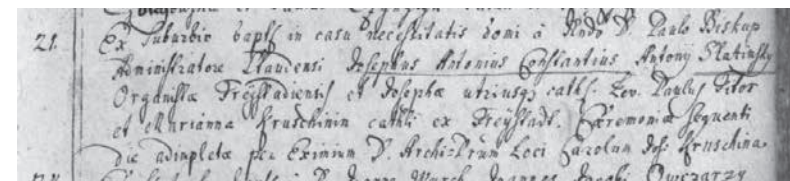 21. Ex Suburbio bapts in casu necessitatis domi à Rndo D. Paulo Biskup
Administratore Laudensi Josephus Antonius Constantius Antonij Slatinsky
Organistæ Freystadiensis et Josephæ utriusq; cathl. Lev. Paulus Titor
et Marianna Kruschinin cathli ex Freystadt. Cæremoniæ sequenti
die adimpletæ per Eximium D. Archi-Prum Loci Carolum Jos: Kruschina